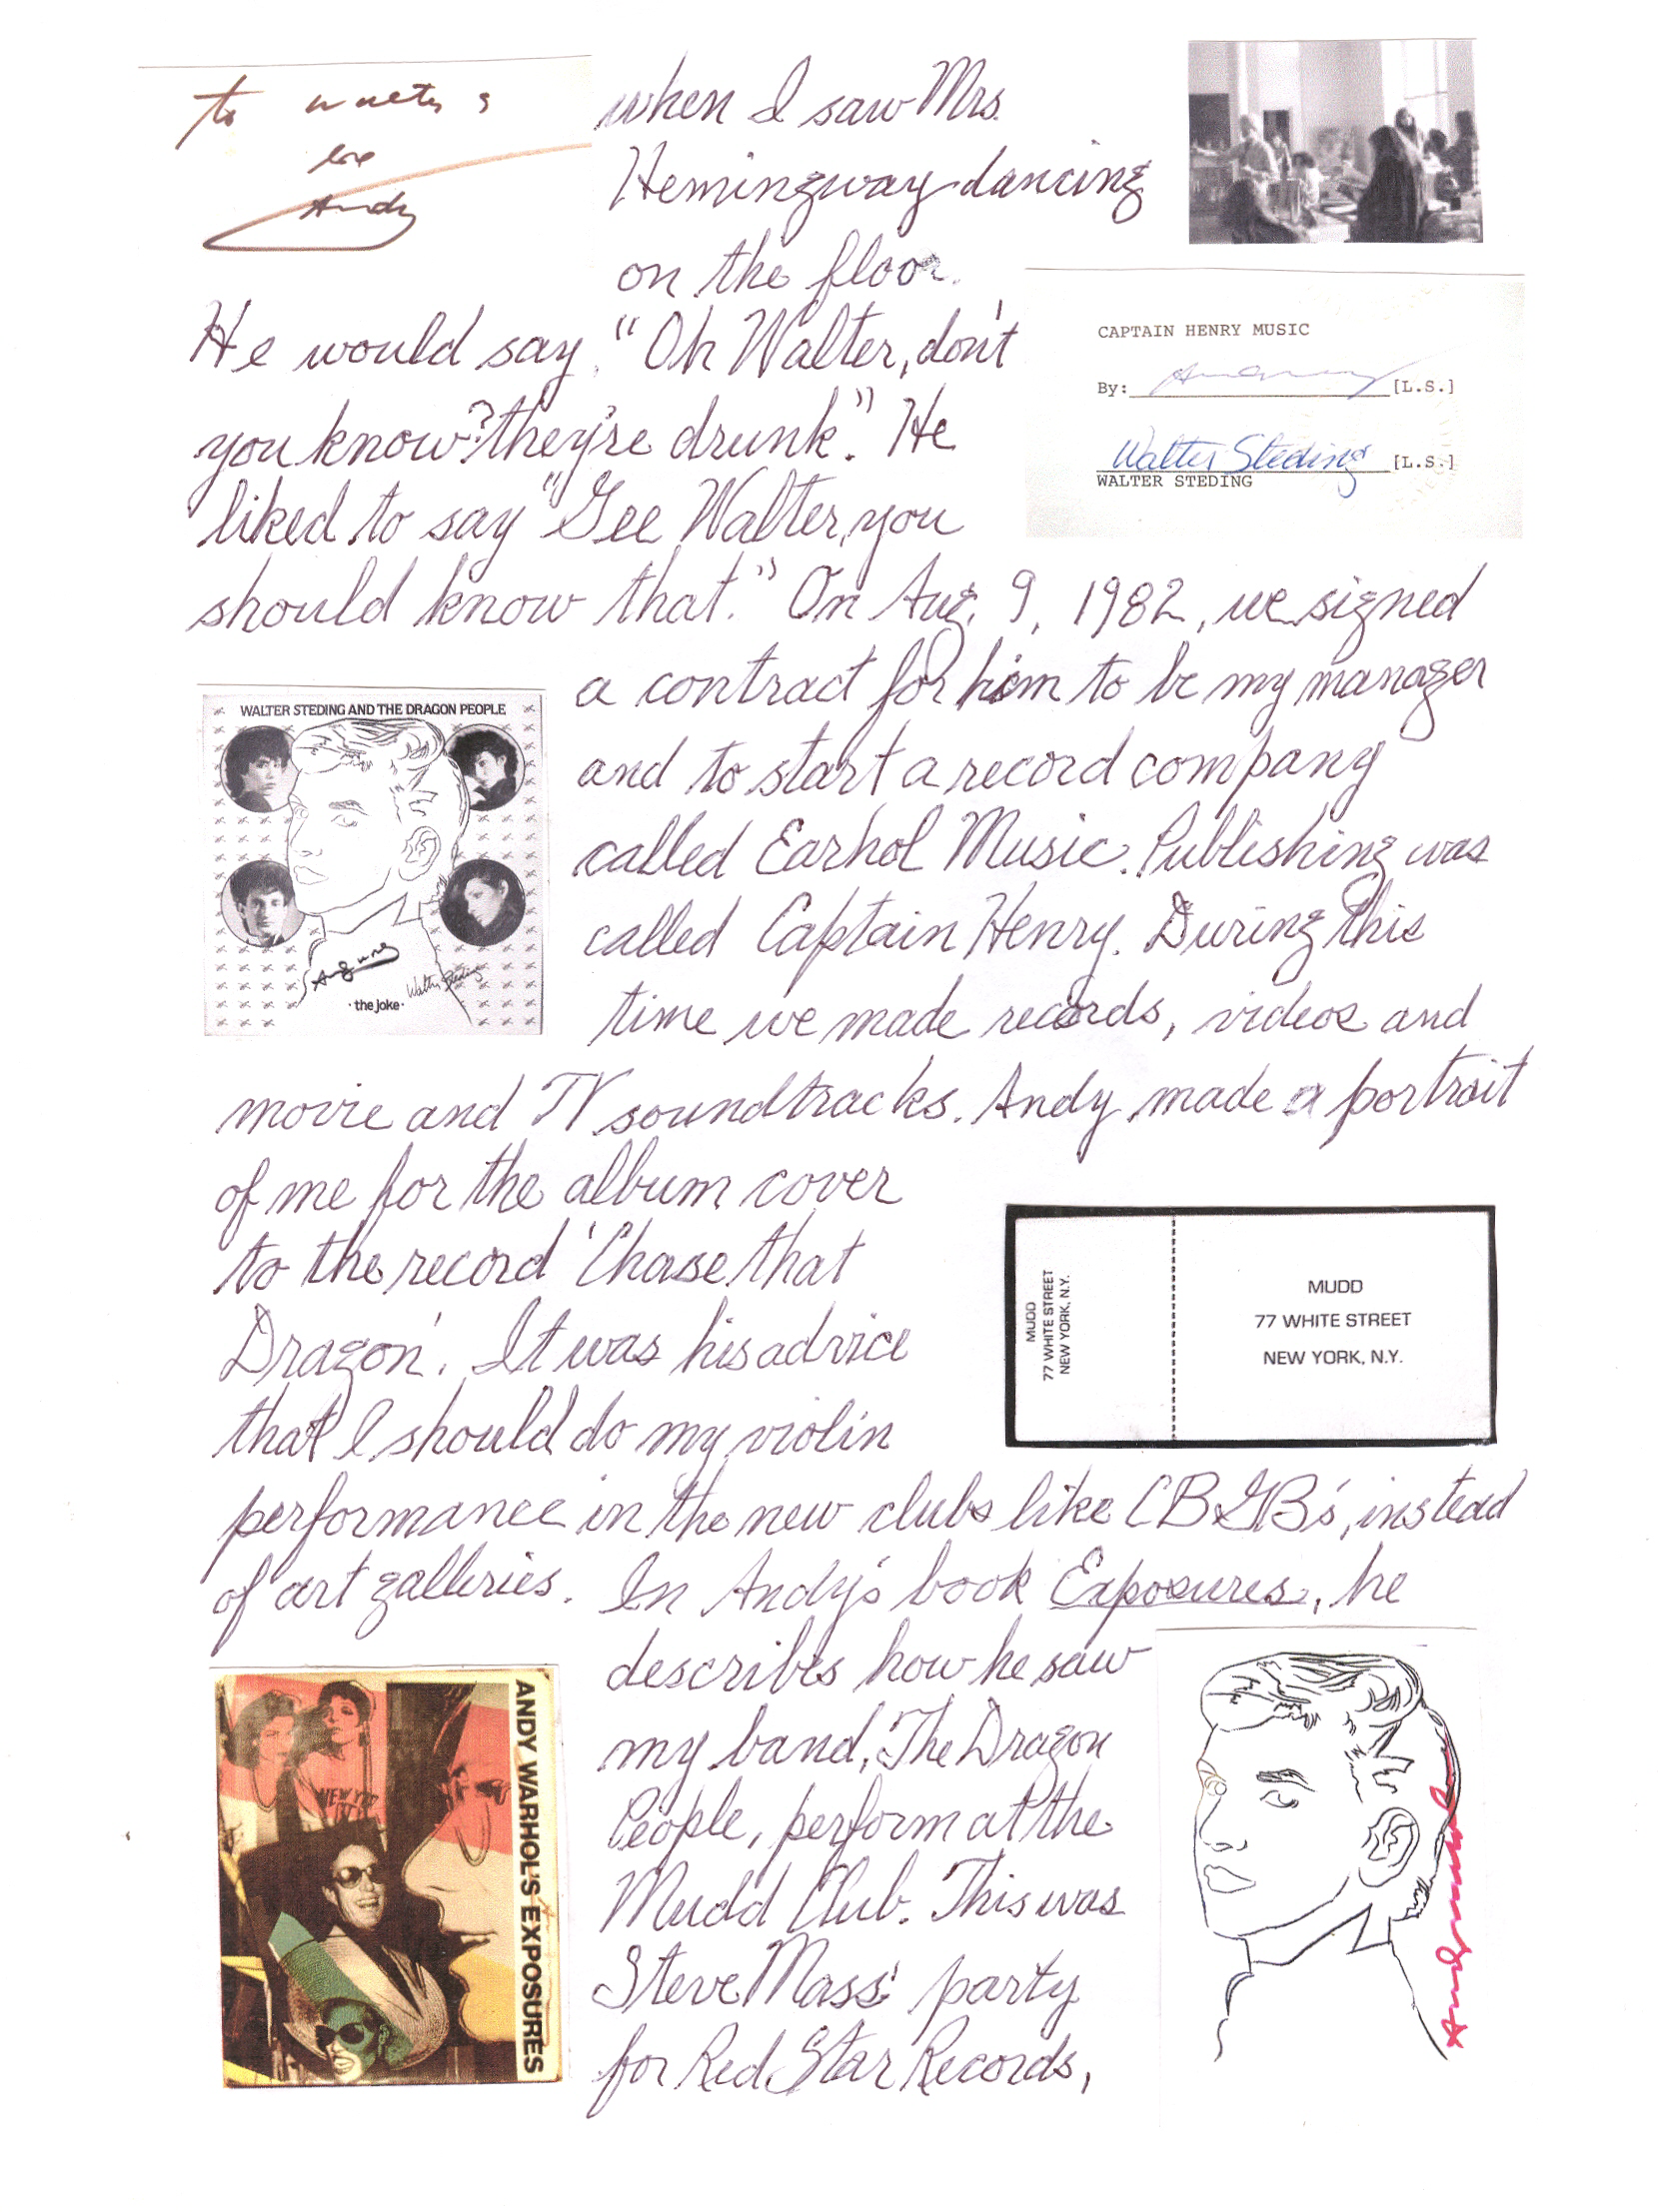 to Walter S
love
Andy
when I saw Mrs.
Hemingway dancing
on the floor.
He would say, "Oh Walter, don't
you know? they're drunk." He
liked to say "Gee Walter, you
should know that." On Aug. 9, 1982, we signed
CAPTAIN HENRY MUSIC
By: [L.S.]
Walter Steding [L.S.]
WALTER STEDING
a contract for him to be my manager
and to start a record company
called Earhol Music. Publishing was
called Captain Henry. During this
time we made records, videos and
WALTER STEDING AND THE DRAGON PEOPLE
Walter Steding
·the joke·
movie and TV soundtracks. Andy made a portrait
of me for the album cover
to the record 'Chase that
Dragon'. It was his advice
that I should do my violin
MUDD
77 WHITE STREET
NEW YORK, N.Y.
MUDD
77 WHITE STREET
NEW YORK, N.Y.
performance in the new clubs like CBGB's, instead
of art galleries. In Andy's book Exposures, he
describes how he saw
my band, The Dragon
People, perform at the
Mudd Club. This was
Steve Mass' party
for Red Star Records,
ANDY WARHOL'S EXPOSURES